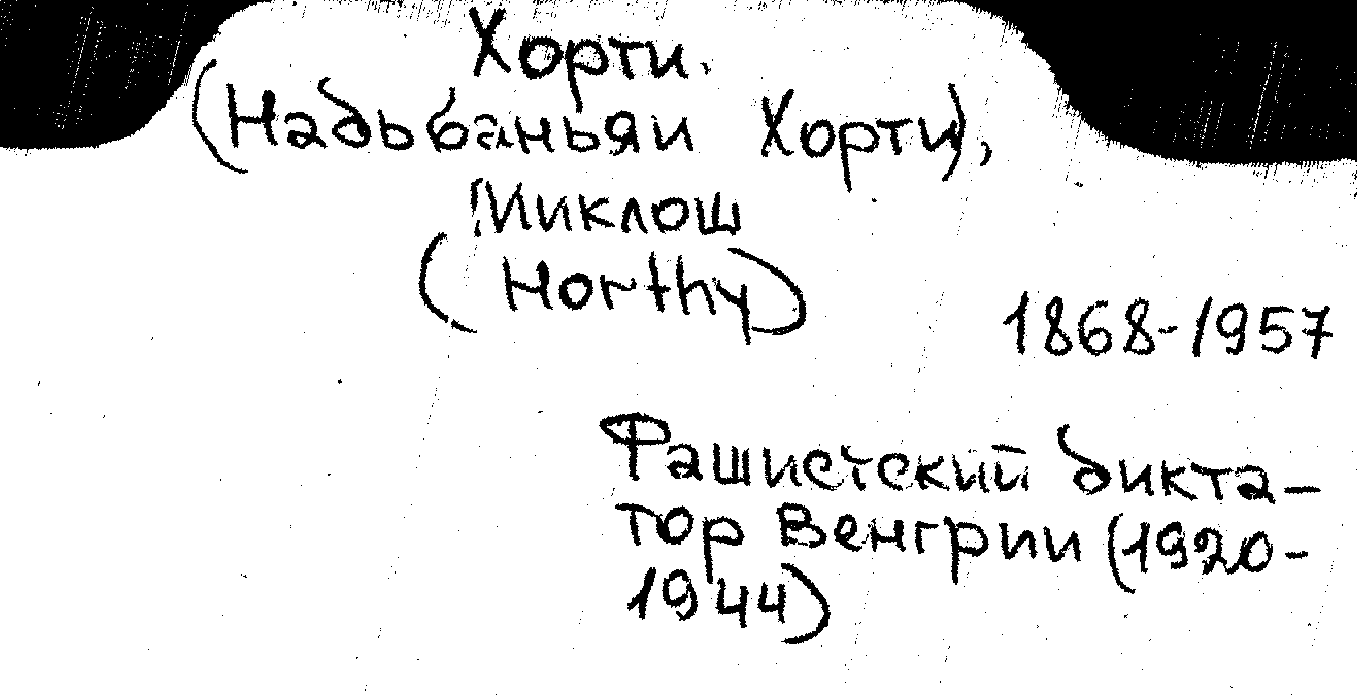 Хорти.
(Надьбаньяи Хорти),
Миклош
(Horthy)
1868-1957
Фашистский дикта-
тор Венгрии (1920-
1944)